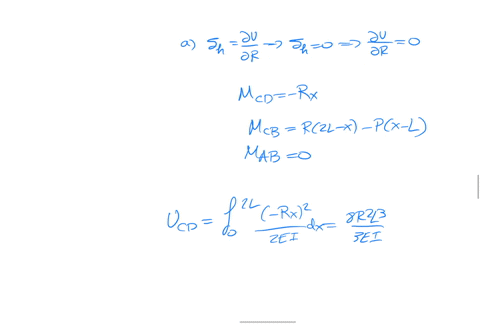 a) δh = ∂U/∂R → δh = 0 ⟹ ∂U/∂R = 0
M_CD = -Rx
M_CB = R(2L-x) - P(x-L)
M_AB = 0
U_CD = ∫_0^2L (-Rx)^2/2EI dx = 8R2L3/3EI